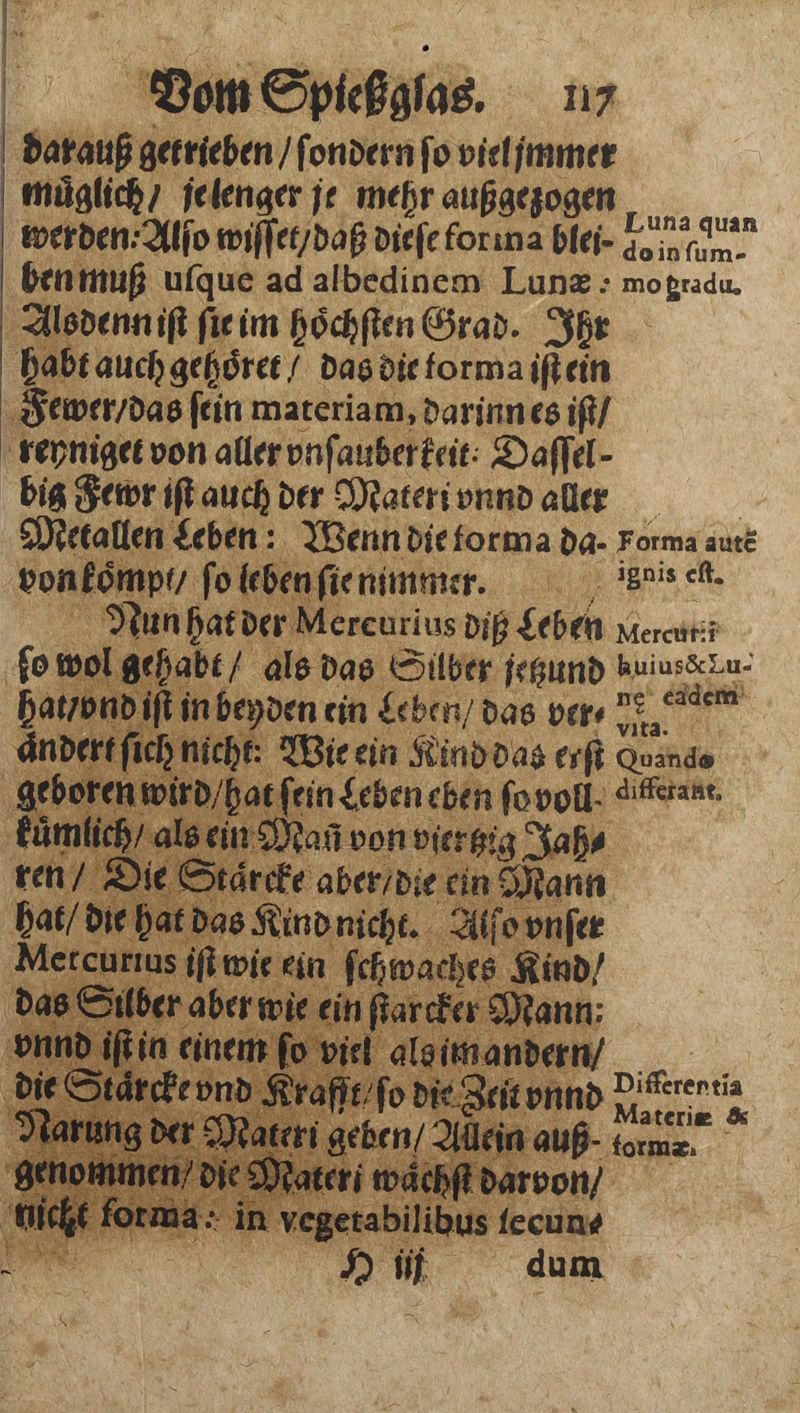 Vom Spießglas. 117
darauß getrieben / sondern so viel jmmer
müglich / je lenger je mehr außgezogen
werden: Also wisset / daß diese forma blei-
ben muß usque ad albedinem Lunæ:
Luna quan
do in sum-
mo gradu.
Alsdenn ist sie im höchsten Grad. Jhr
habt auch gehöret / das die forma ist ein
Fewer / das sein materiam, darinn es ist /
reyniget von aller vnsauberkeit: Dassel-
big Fewr ist auch der Materi vnnd aller
Metallen Leben: Wenn die forma da-
von kömpt / so leben sie nimmer.
Forma autẽ
ignis est.
Nun hat der Mercurius diß Leben
so wol gehabt / als das Silber jetzund
hat / vnd ist in beyden ein Leben / das ver-
ändert sich nicht: Wie ein Kind das erst
geboren wird / hat sein Leben eben so voll-
Mercurii
huius & Lu-
nę eadem
vita.
Quando
differant.
kümlich / als ein Mañ von viertzig Jah-
ren / Die Stärcke aber / die ein Mann
hat / die hat das Kind nicht. Also vnser
Mercurius ist wie ein schwaches Kind /
das Silber aber wie ein starcker Mann:
vnnd ist in einem so viel als im andern /
die Stärcke vnd Krafft / so die Zeit vnnd
Narung der Materi geben / Allein auß-
Differentia
Materiæ &
formæ.
genommen / die Materi wächst darvon /
nicht forma: in vegetabilibus secun-
H iij dum